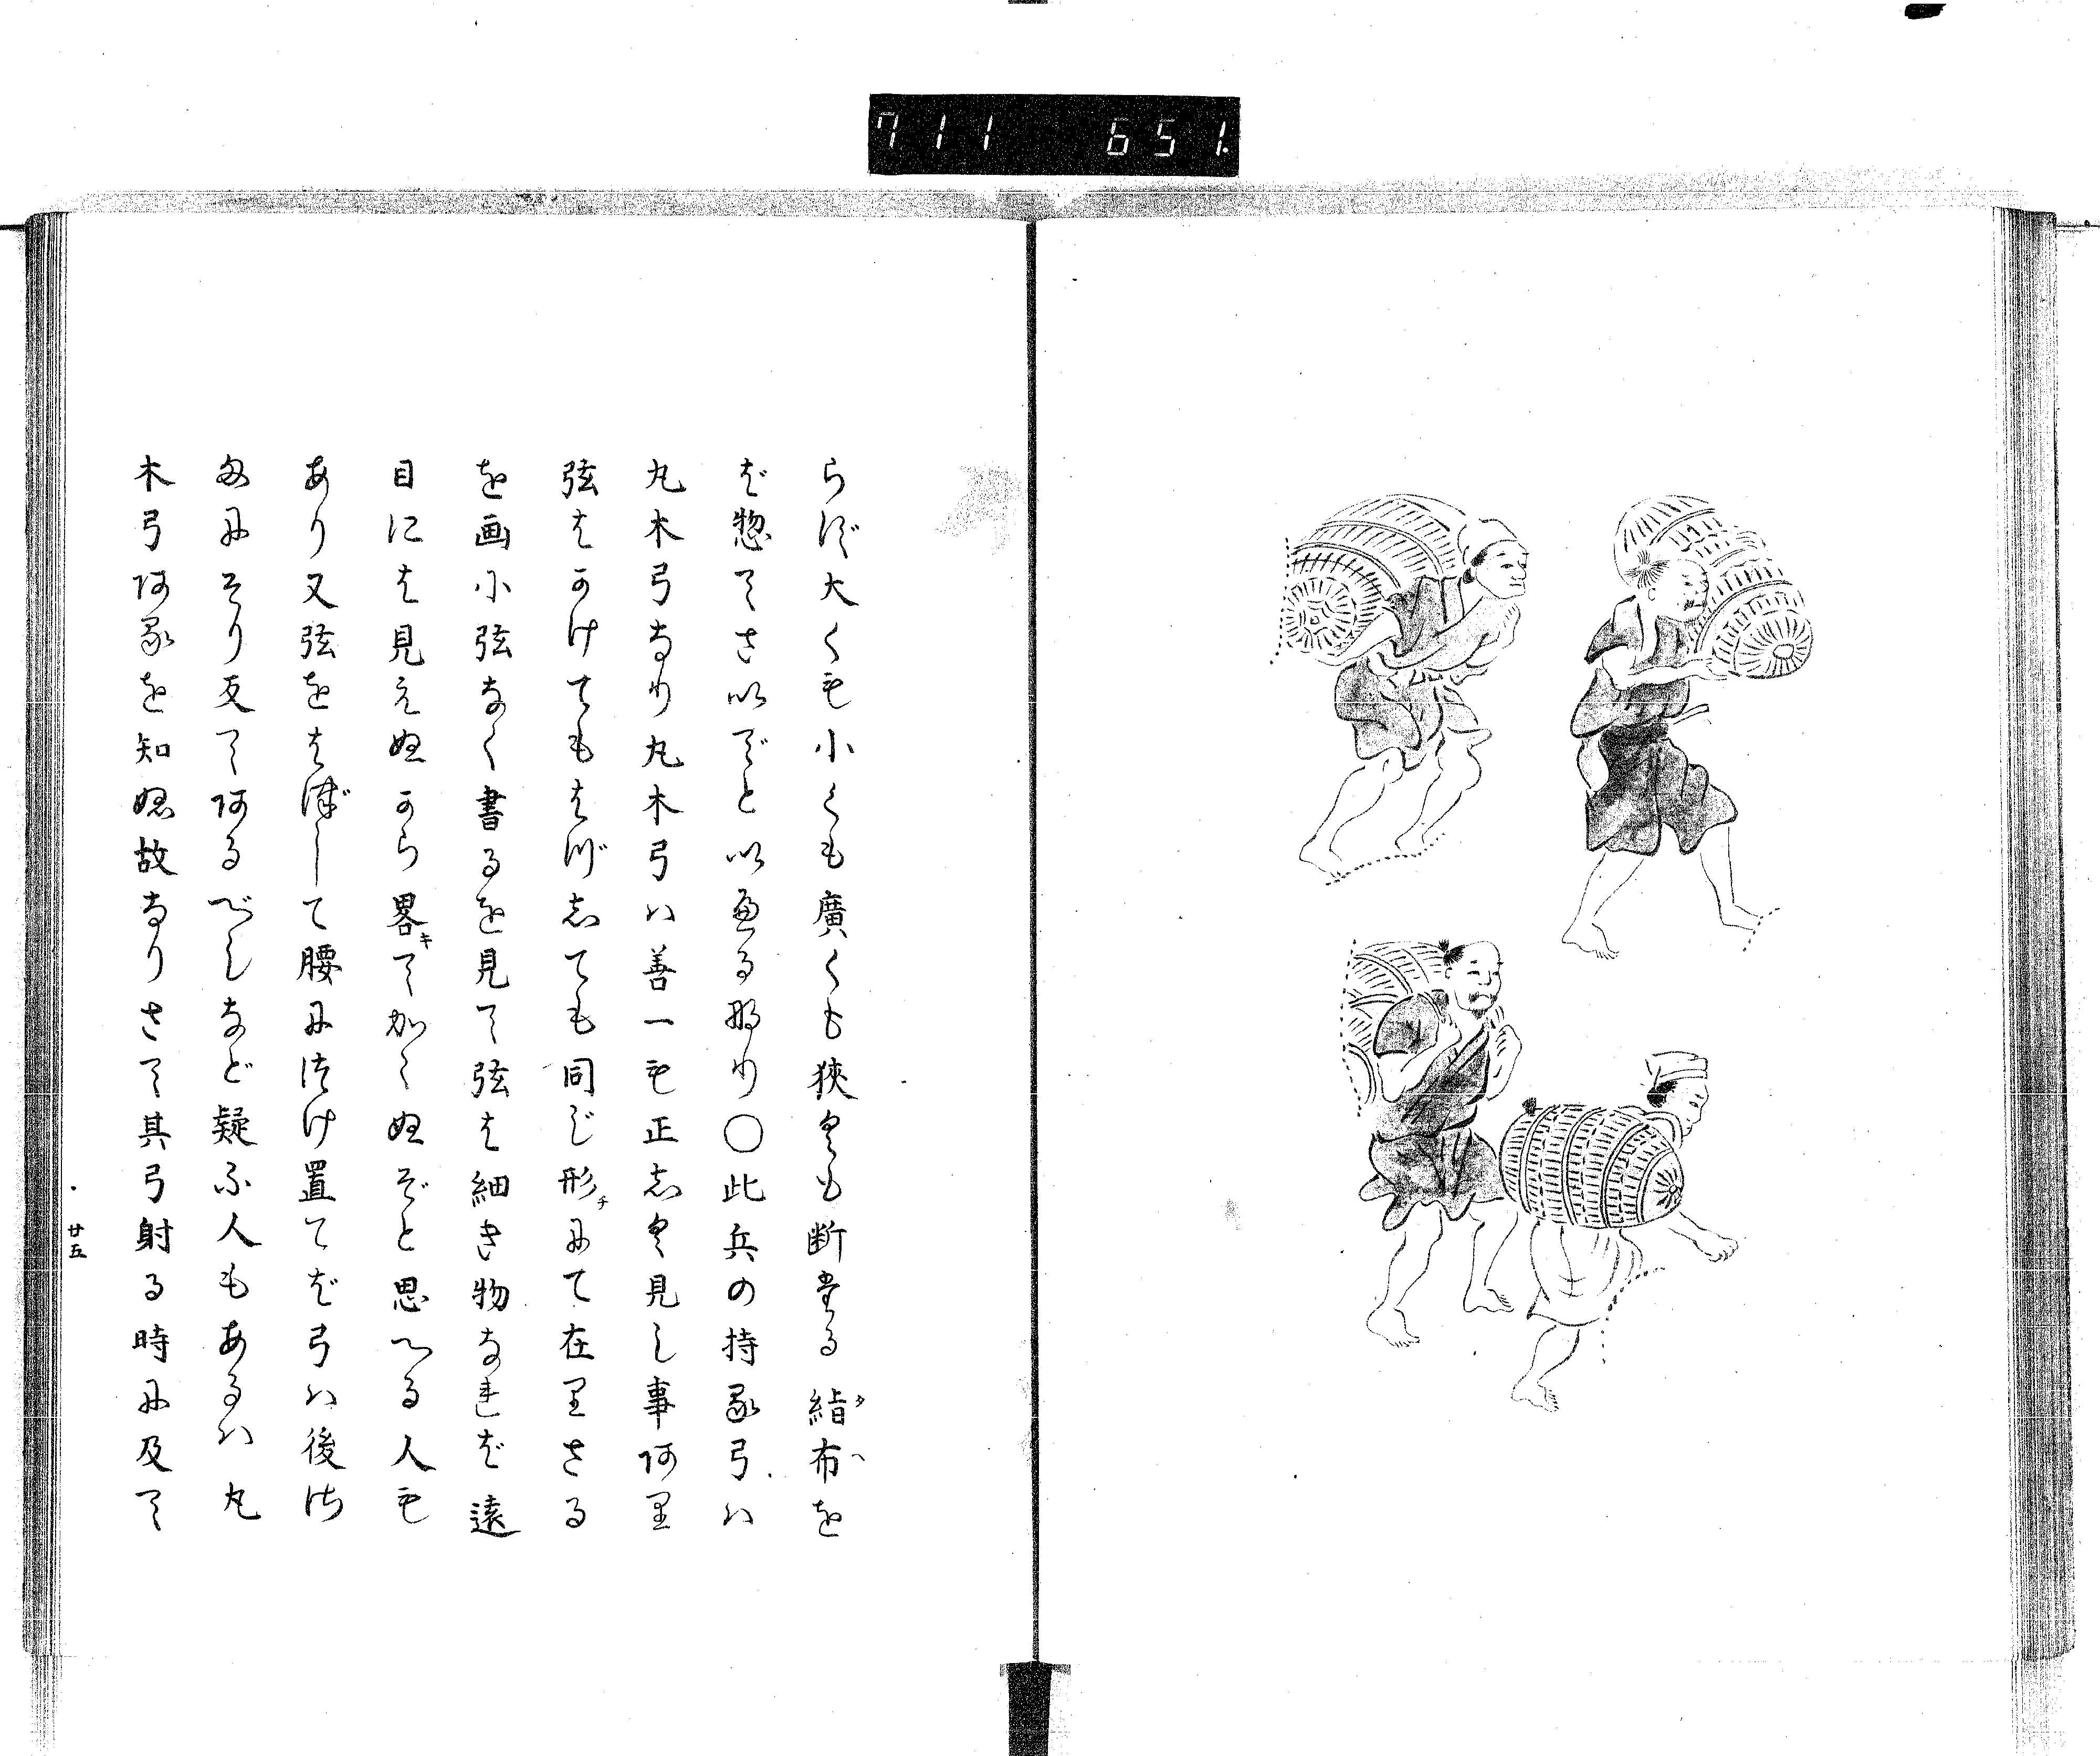 711 651
らば大くも小くも廣くも狹くも断たる䋛布を
タヘ
ば惣てさいでといへる那り〇此兵の持る弓ハ
丸木弓なり丸木弓ハ善一も正しく見し事阿里
弦はかけてもはづしても同じ形にて在里さる
チ
を画小弦なく書るを見て弦は細き物なれば遠
目には見えぬから畧てかくぬぞと思へる人も
キ
あり又弦をはづして腰につけ置てば弓ハ後に
そり反て阿るべしなど疑ふ人もあるハ丸
木弓阿るを知ぬ故なりさて其弓射る時に及て
廿五